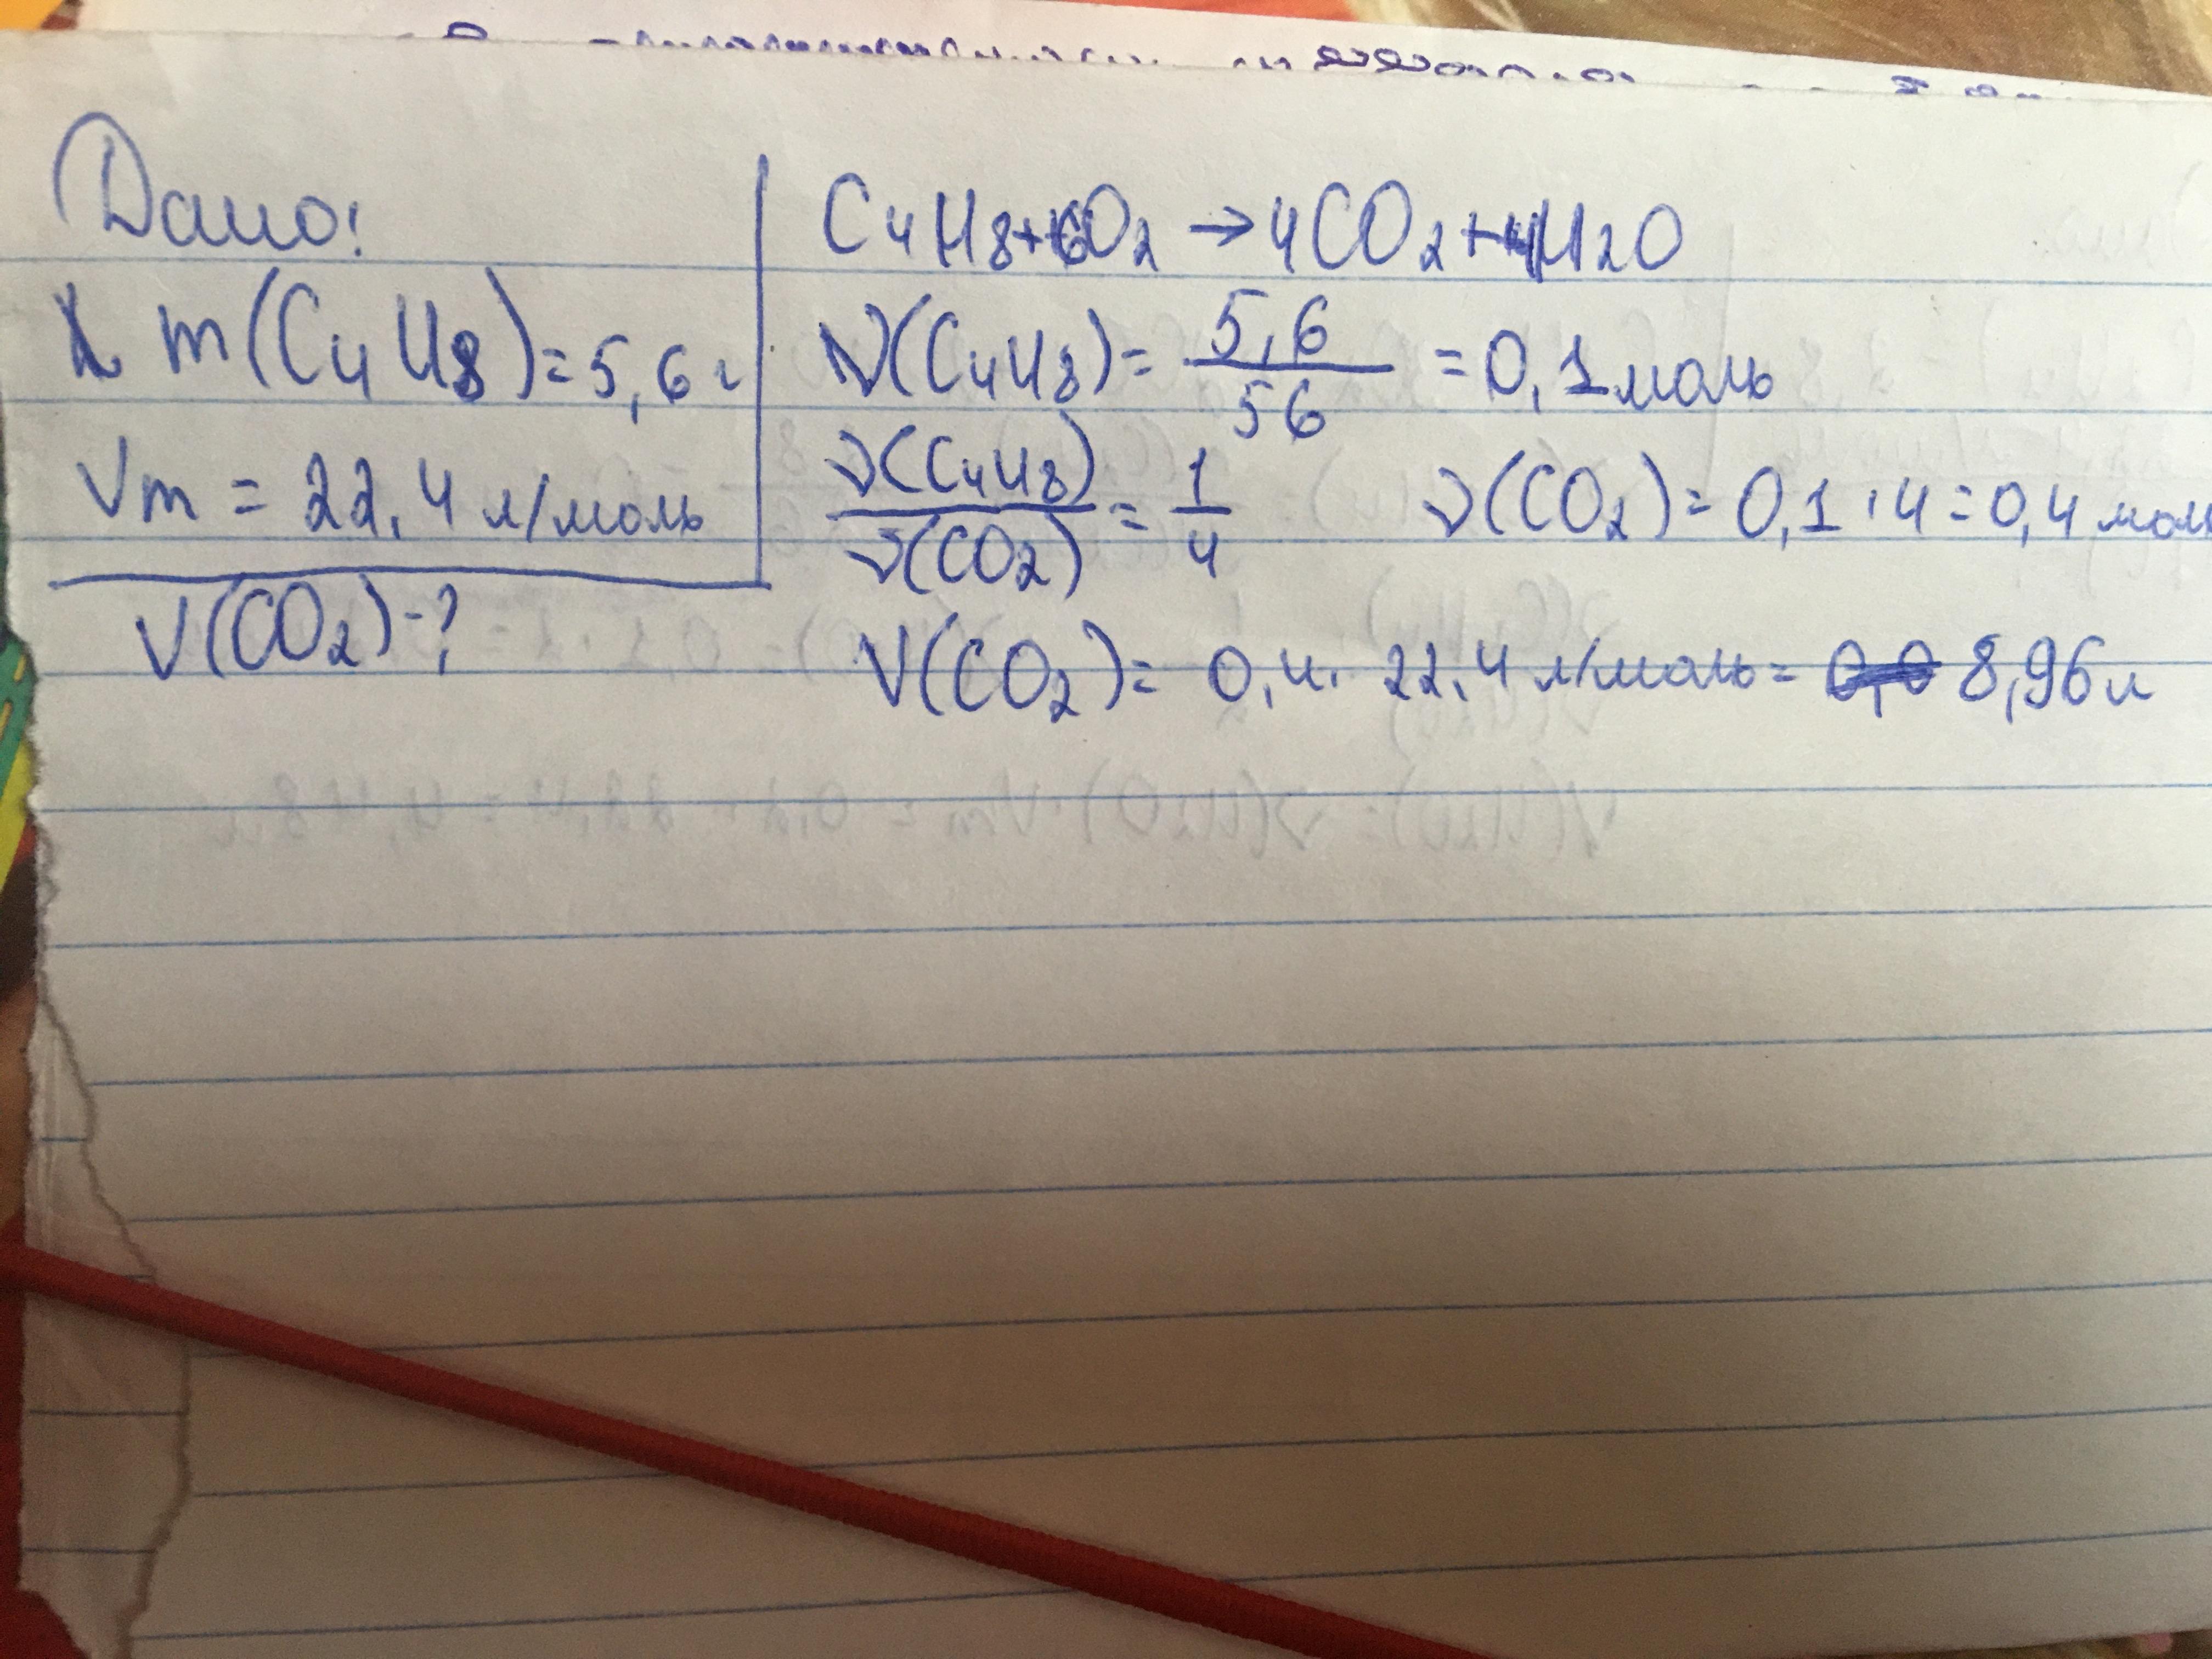 Дано:
m(C4H8)=5,6 г
Vm = 22,4 л/моль
V(CO2)-?
C4H8+6O2 → 4CO2+4H2O
ν(C4H8)= 5,6/56 =0,1 моль
ν(C4H8)/ν(CO2) = 1/4 ν(CO2)= 0,1·4=0,4 моль
V(CO2)= 0,4· 22,4 л/моль= 8,96 л